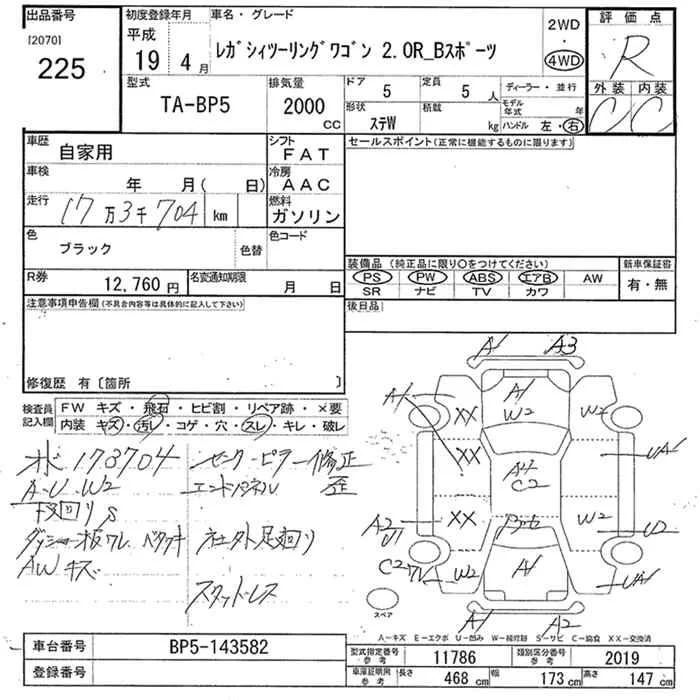 出品番号
[2070]
225
初度登録年月
平成
19 4月
車名・グレード
ﾚｶﾞｼｨﾂｰﾘﾝｸﾞﾜｺﾞﾝ 2.0R_Bｽﾎﾟｰﾂ
2WD
・
4WD
評価点
R
外装 内装
C C
型式
TA-BP5
排気量
2000
CC
ドア
5
定員
5人
形状
ｽﾃW
積載
kg
ディーラー・並行
モデル年式 年
ハンドル 左・右
車歴
自家用
シフト
FAT
車検
年 月( 日)
冷房
AAC
走行
17万3千704 km
燃料
ガソリン
色
ブラック
色替
色コード
R券
12,760円
名変通知期限
月 日
セールスポイント(正常に機能するものに限ります)
装備品(純正品に限り○をつけてください)
PS PW ABS エアB AW
SR ナビ TV カワ
新車保証書
有・無
後日品
注意事項申告欄(不具合内容等は具体的に記入して下さい)
修復歴 有〔箇所 〕
検査員記入欄
FW キズ・飛石・ヒビ割・リペア跡・×要
内装 キズ・汚レ・コゲ・穴・スレ・キレ・破レ
173704
A-U W2
下回りS
AWキズ
センターピラー修正
エンドパネル 歪
社外足回り
スタッドレス
A1 A3
A1
A1
W2
XX
W2
XX
A4
C2
UA1
A2
U1
XX
W2
U2
C2
ワレ
W2
A1
UA1
A1 A2
スペア
A-キズ E-エクボ U-凹み W-補修跡 S-サビ C-腐食 XX-交換済
車台番号
BP5-143582
登録番号
型式指定番号
参考
11786
類別区分番号
参考
2019
車庫証明用
参考
長さ
468 cm
幅
173 cm
高さ
147 cm